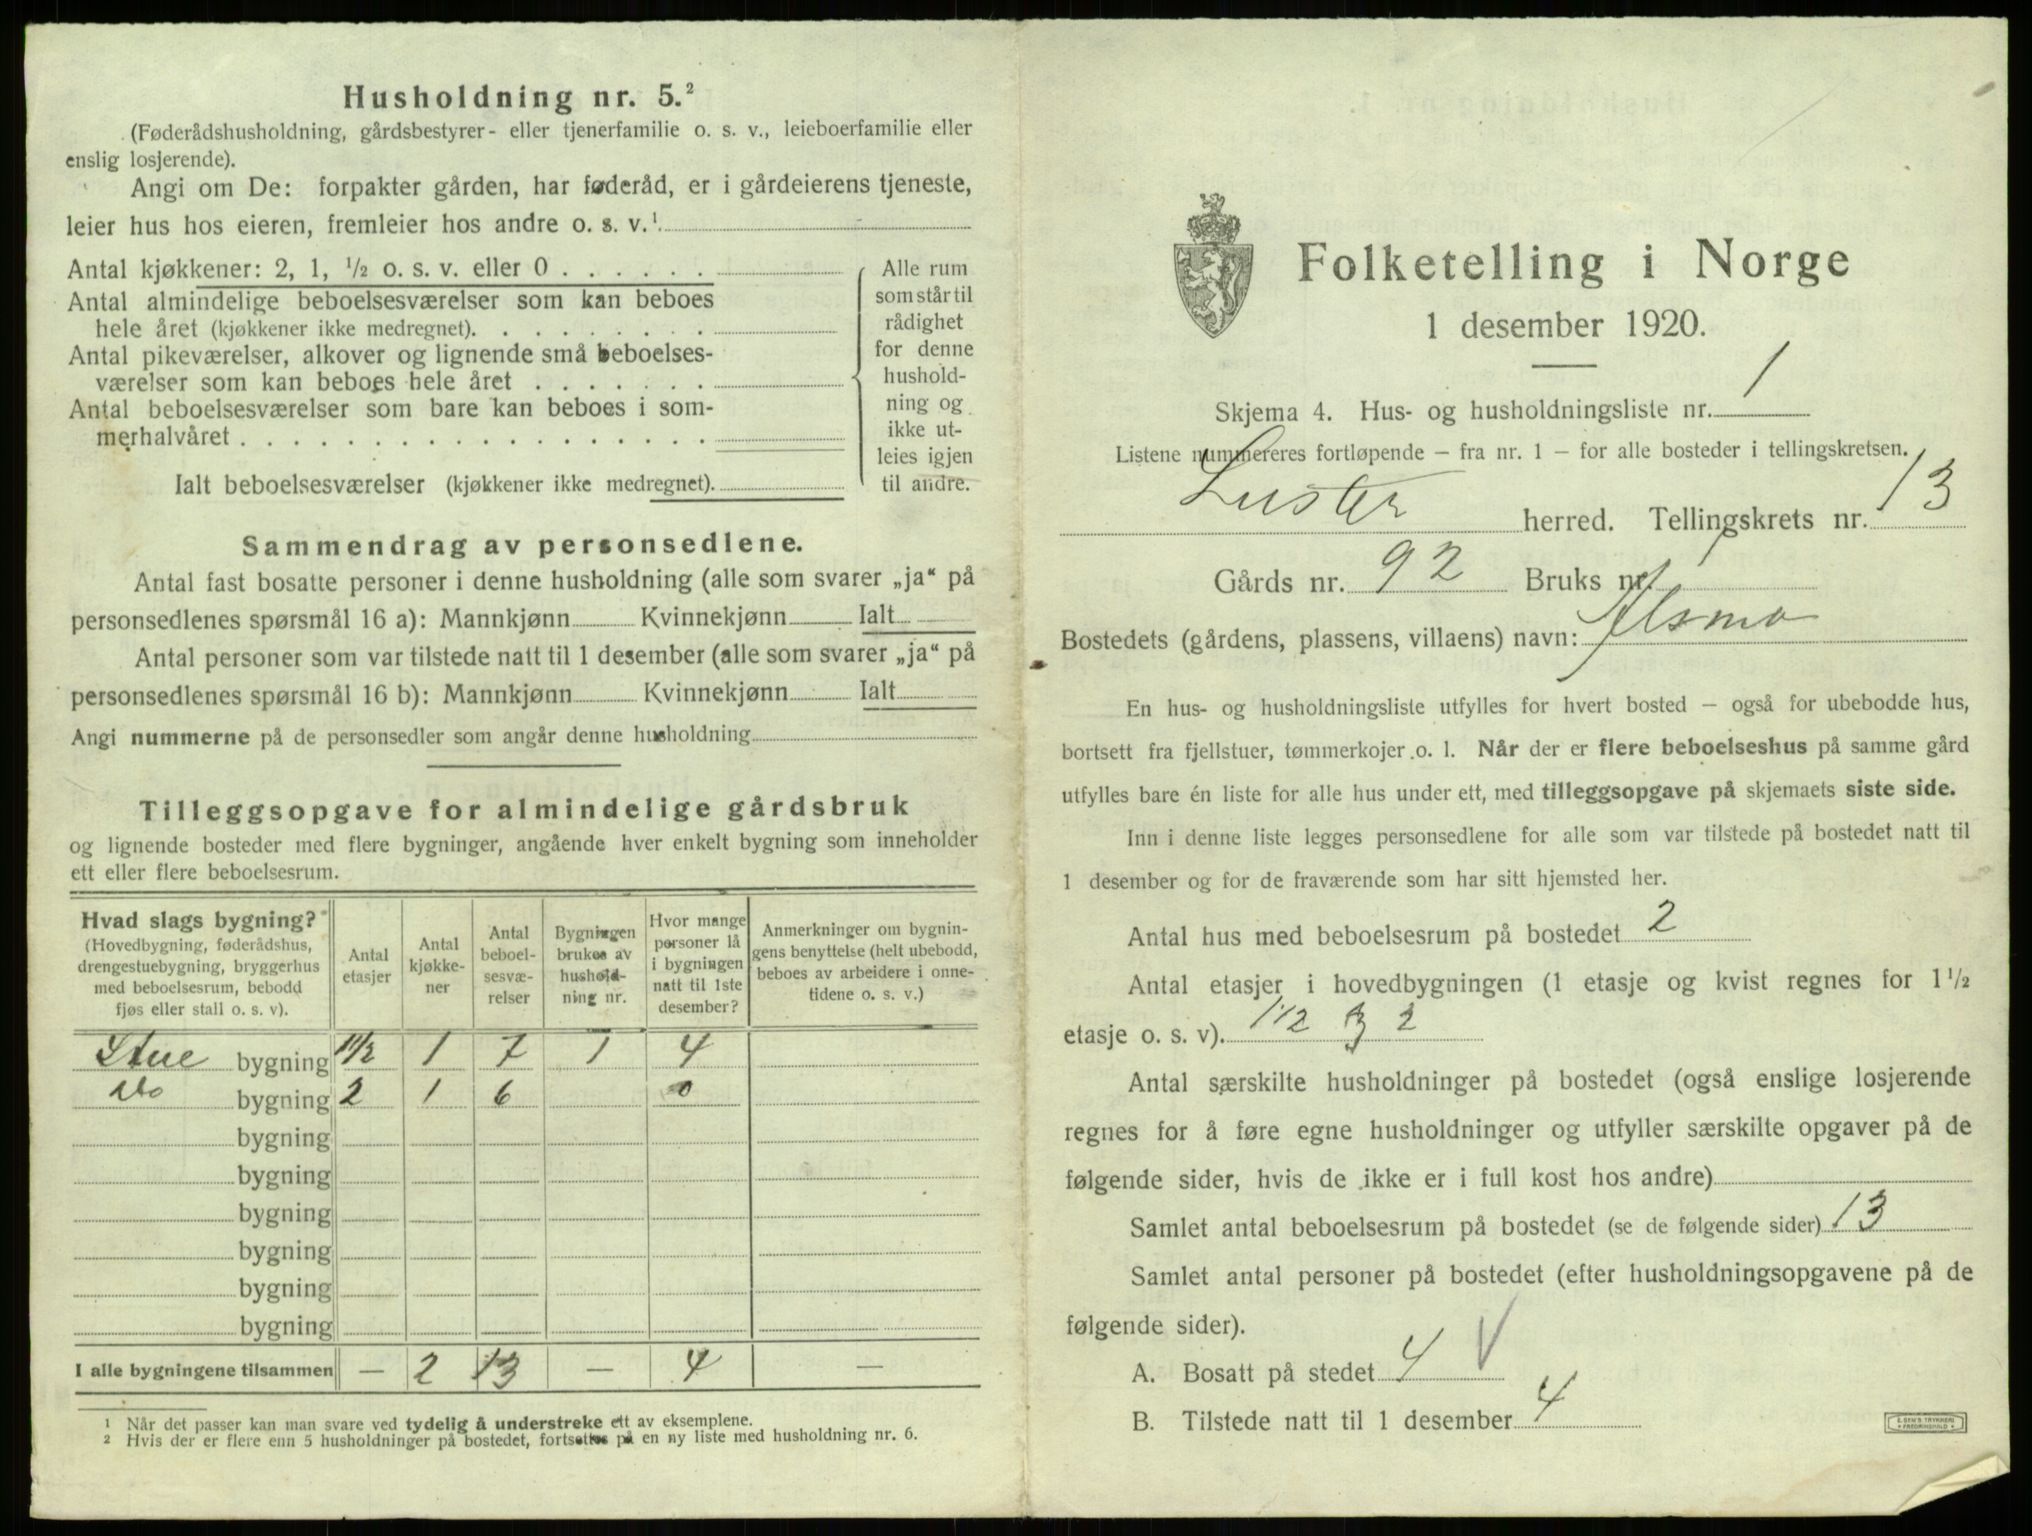 Husholdning nr. 5.²
(Føderådshusholdning, gårdsbestyrer- eller tjenerfamilie o. s. v., leieboerfamilie eller
enslig losjerende).
Angi om De: forpakter gården, har føderåd, er i gårdeierens tjeneste,
leier hus hos eieren, fremleier hos andre o. s. v.¹
Antal kjøkkener: 2, 1, ½ o. s. v. eller 0 . . . . . .
Antal almindelige beboelsesværelser som kan beboes
hele året (kjøkkener ikke medregnet). . . . . . . . .
Antal pikeværelser, alkover og lignende små beboelses-
værelser som kan beboes hele året . . . . . . .
Antal beboelsesværelser som bare kan beboes i som-
merhalvåret . . . . . . . . . . . . . . . . . .
Ialt beboelsesværelser (kjøkkener ikke medregnet).
Alle rum
som står til
rådighet
for denne
hushold-
ning og
ikke ut-
leies igjen
til andre.
Sammendrag av personsedlene.
Antal fast bosatte personer i denne husholdning (alle som svarer „ja“ på
personsedlenes spørsmål 16 a): Mannkjønn Kvinnekjønn Ialt
Antal personer som var tilstede natt til 1 desember (alle som svarer „ja“ på
personsedlenes spørsmål 16 b): Mannkjønn Kvinnekjønn Ialt
Angi nummerne på de personsedler som angår denne husholdning
Tilleggsopgave for almindelige gårdsbruk
og lignende bosteder med flere bygninger, angående hver enkelt bygning som inneholder
ett eller flere beboelsesrum.
Hvad slags bygning?
(Hovedbygning, føderådshus,
drengestuebygning, bryggerhus
med beboelsesrum, bebodd
fjøs eller stall o. s. v).
Antal
etasjer
Antal
kjøkke-
ner
Antal
beboel-
sesvæ-
relser
Bygningen
brukes av
hushold-
ning nr.
Hvor mange
personer lå
i bygningen
natt til 1ste
desember?
Anmerkninger om bygnin-
gens benyttelse (helt ubebodd,
beboes av arbeidere i onne-
tidene o. s. v.)
Stue bygning 1½ 1 7 1 4
do bygning 2 1 6 0
bygning
bygning
bygning
bygning
bygning
bygning
I alle bygningene tilsammen — 2 13 — 4 —
¹ Når det passer kan man svare ved tydelig å understreke ett av eksemplene.
² Hvis der er flere enn 5 husholdninger på bostedet, fortsettes på en ny liste med husholdning nr. 6.
Folketelling i Norge
1 desember 1920.
Skjema 4. Hus- og husholdningsliste nr. 1
Listene nummereres fortløpende – fra nr. 1 – for alle bosteder i tellingskretsen.
Luster herred. Tellingskrets nr. 13
Gårds nr. 92 Bruks nr. 1
Bostedets (gårdens, plassens, villaens) navn: Alsmo
En hus- og husholdningsliste utfylles for hvert bosted – også for ubebodde hus,
bortsett fra fjellstuer, tømmerkojer o. l. Når der er flere beboelseshus på samme gård
utfylles bare én liste for alle hus under ett, med tilleggsopgave på skjemaets siste side.
Inn i denne liste legges personsedlene for alle som var tilstede på bostedet natt til
1 desember og for de fraværende som har sitt hjemsted her.
Antal hus med beboelsesrum på bostedet 2
Antal etasjer i hovedbygningen (1 etasje og kvist regnes for 1 ½
etasje o. s. v). 1½ 2
Antal særskilte husholdninger på bostedet (også enslige losjerende
regnes for å føre egne husholdninger og utfyller særskilte opgaver på de
følgende sider, hvis de ikke er i full kost hos andre)
Samlet antal beboelsesrum på bostedet (se de følgende sider) 13
Samlet antal personer på bostedet (efter husholdningsopgavene på de
følgende sider).
A. Bosatt på stedet 4 V
B. Tilstede natt til 1 desember 4